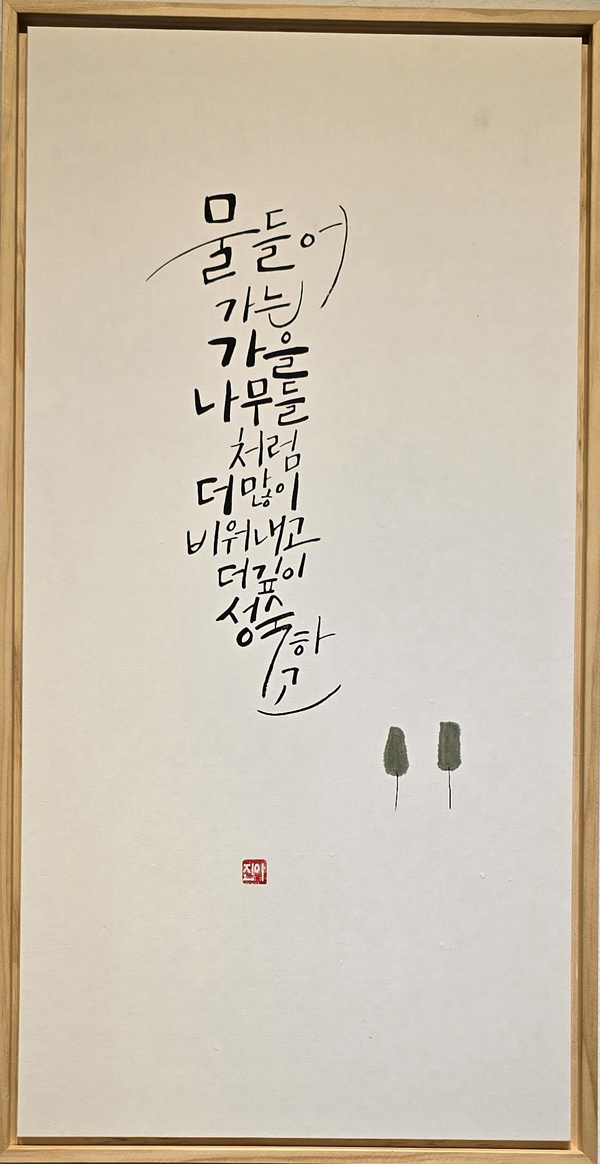 물들어
가는
가을
나무들
처럼
더 많이
비워내고
더 깊이
성숙하
고
진아